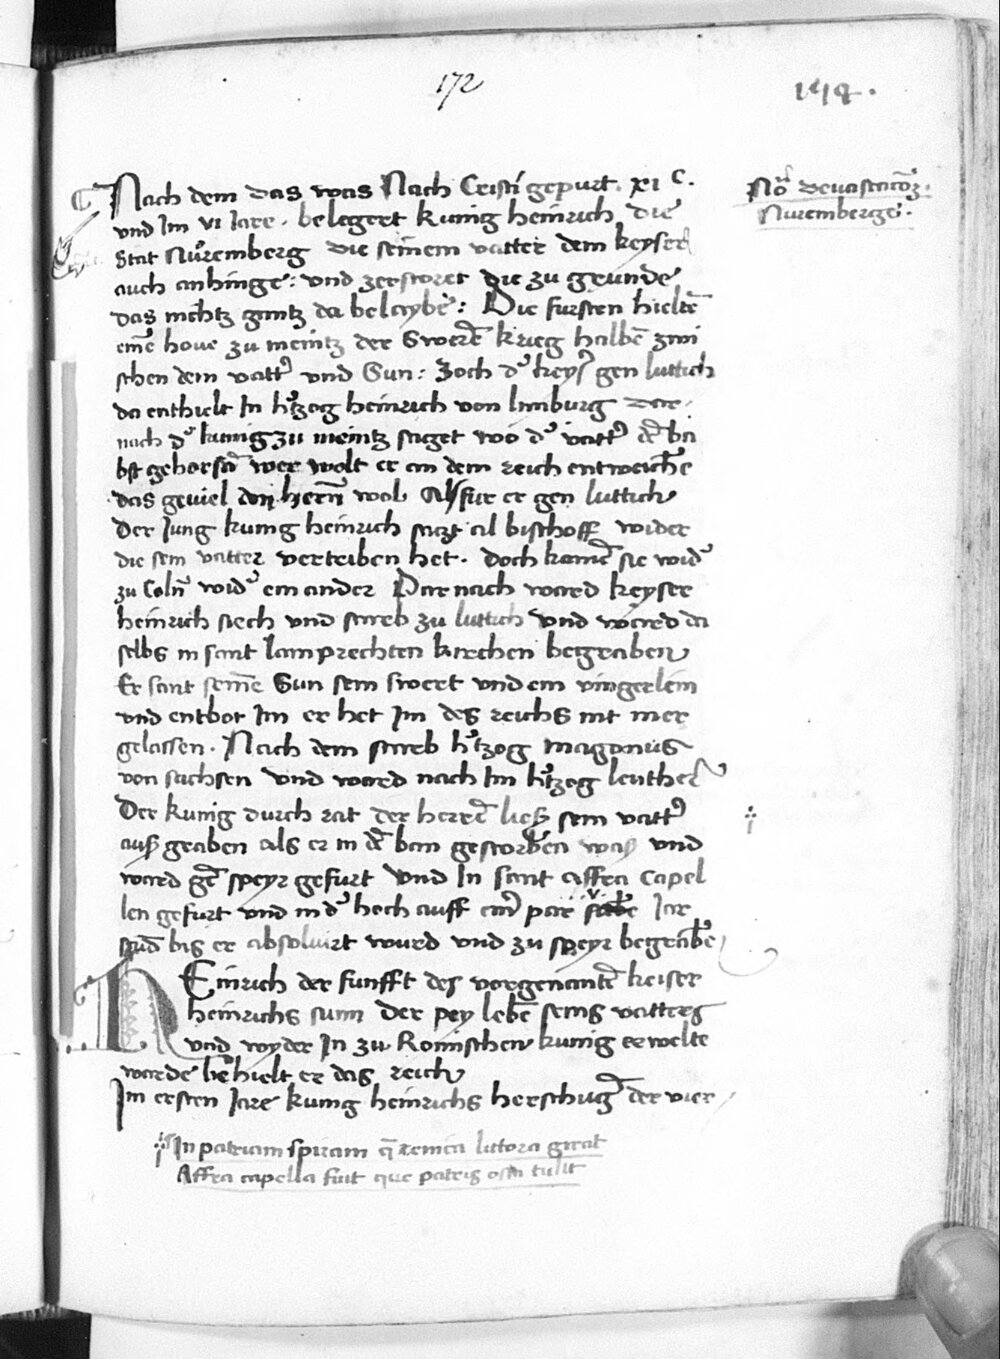 172
174.
Nach dem das was Nach Cristi gepurt. xi c.
und Im vi Iare. belegert kunig heinrich die
Stat Nuremberg die seinem vatter dem keyser
auch anhinge: und zerstoret die zu grunde
das nichtz gantz da belaybe: Die fursten hielte
eine hove zu meintz der Swere krieg halbe zwi
schen dem vatter und Sun: Zoch der keyser gen luttich
da enthielt In hertzog heinrich von limburg Dar
nach der kunig zu meintz saget wo der vatter de ba
bst gehorsam wer wolt er an dem reich entweiche
das geviel den hern wol Also fur er gen luttich
Der Jung kunig heinrich satzt al bischoff wider
die sein vatter vertriben het. Doch kame sie wider
zu Coln wider einander Darnach ward keyser
heinrich siech und starb zu luttich und ward da
selbs in sant lamprechten kirchen begraben
Er sant seine Sun sein swert und ein vingerlein
und entbot Im er het Im des reichs nit mer
gelassen. Nach dem starb hertzog magonus
von sachsen und ward nach Im hertzog leuther
Der kunig durch rat der herre ließ sein vatter
auß graben als er in de ban gestorben waß und
ward gen speyr gefurt und In sant affra Capel
len gefurt und in der hoch auff ein par v Jar
stund bis er absolvirt wurd und zu speyr begrabe
HEinrich der funfft des vorgenante keiser
heinrichs sunn Der pey lebe seins vatters
und wyder In zu Romischen kunig erwelte
warde behielt er das reich
Im ersten Iare kunig heinrichs herschung der vier
Nota devastacionem
Nurembergen.
In patriam spiram
Affra capella fuit que patris ossa tulit